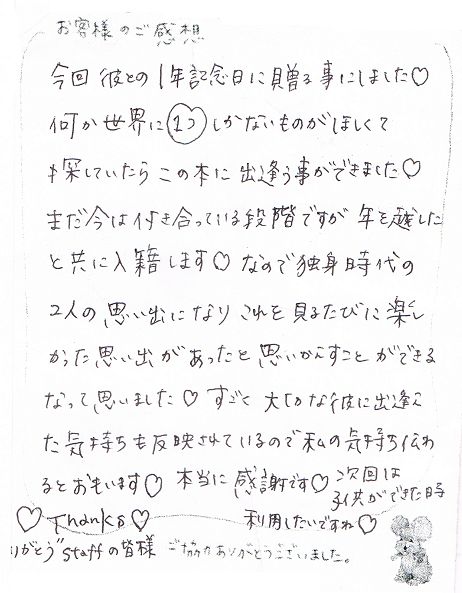 お客様のご感想
今回 彼との1年記念日に贈る事にしました♡
何か世界に1つしかないものがほしくて
探していたら この本に 出逢う事ができました♡
まだ今は付き合っている段階ですが 年を越した
と共に入籍します♡ なので独身時代の
2人の思い出になり これを見るたびに楽し
かった思い出があったと思いかえすことができる
なって思いました♡ すごく 大切な彼に出逢え
た気持ちも反映されているので私の気持ち伝わ
るとおもいます♡ 本当に感謝です♡ 次回は
子供ができた時
♡Thanks♡ 利用したいですね♡
りがとう"staffの皆様 ご協力ありがとうございました。